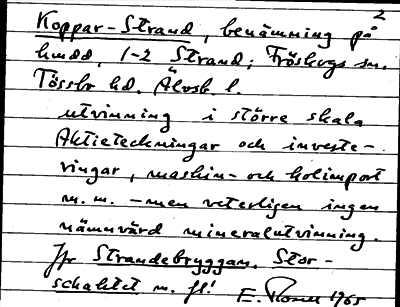 2
Koppar-Strand, benämning på
hmdd, 1-2 Strand, Fröskogs sn.
Tössbo hd. Älvsb. l.
utvinning i större skala
Aktieteckningar och investe-
ringar, maskin- och kolimport
m.m. - men veterligen ingen
nämnvärd mineralutvinning.
Jfr Strandebryggan, Stor-
schaktet m. fl!
E. 1965